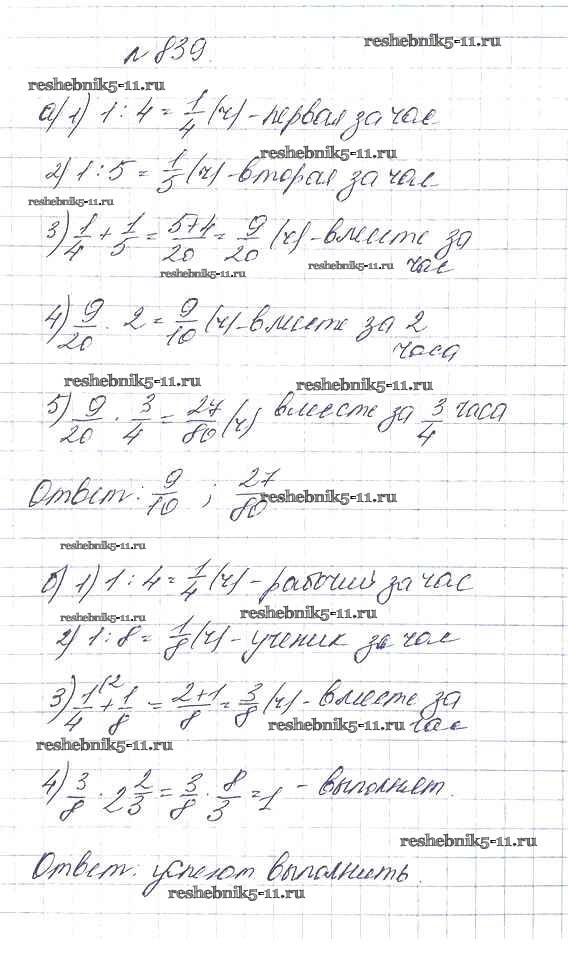 reshebnik5-11.ru
№ 839.
reshebnik5-11.ru
а) 1) 1 : 4 = 1/4 (ч) - первая за час
reshebnik5-11.ru
2) 1 : 5 = 1/5 (ч) - вторая за час
reshebnik5-11.ru
3) 1/4 + 1/5 = 5+4/20 = 9/20 (ч) - вместе за
reshebnik5-11.ru reshebnik5-11.ru час
4) 9/20 · 2 = 9/10 (ч) - вместе за 2
часа
reshebnik5-11.ru reshebnik5-11.ru
5) 9/20 · 3/4 = 27/80 (ч) вместе за 3/4 часа
Ответ: 9/10 ; 27/80
reshebnik5-11.ru
reshebnik5-11.ru
б) 1) 1 : 4 = 1/4 (ч) - рабочий за час
reshebnik5-11.ru reshebnik5-11.ru
2) 1 : 8 = 1/8 (ч) - ученик за час
3) 1/4 (2 + 1/8 = 2+1/8 = 3/8 (ч) - вместе за
reshebnik5-11.ru час
reshebnik5-11.ru
4) 3/8 · 2 2/3 = 3/8 · 8/3 = 1 - выполнят.
reshebnik5-11.ru
Ответ: успеют выполнить.
reshebnik5-11.ru